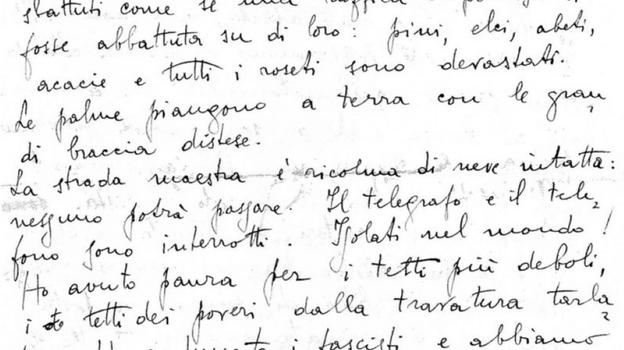 sbattuti come se una raffica
fosse abbattuta su di loro: pini, elci, abeti,
acacie e tutti i roseti sono devastati.
Le palme piangono a terra con le gran
di braccia distese.
La strada maestra è ricolma di neve intatta:
nessuno potrà passare. Il telegrafo e il tele
fono sono interrotti. Isolati nel mondo!
Ho avuto paura per i tetti più deboli,
i tetti dei poveri dalla travatura tarla
i fascisti e abbiamo